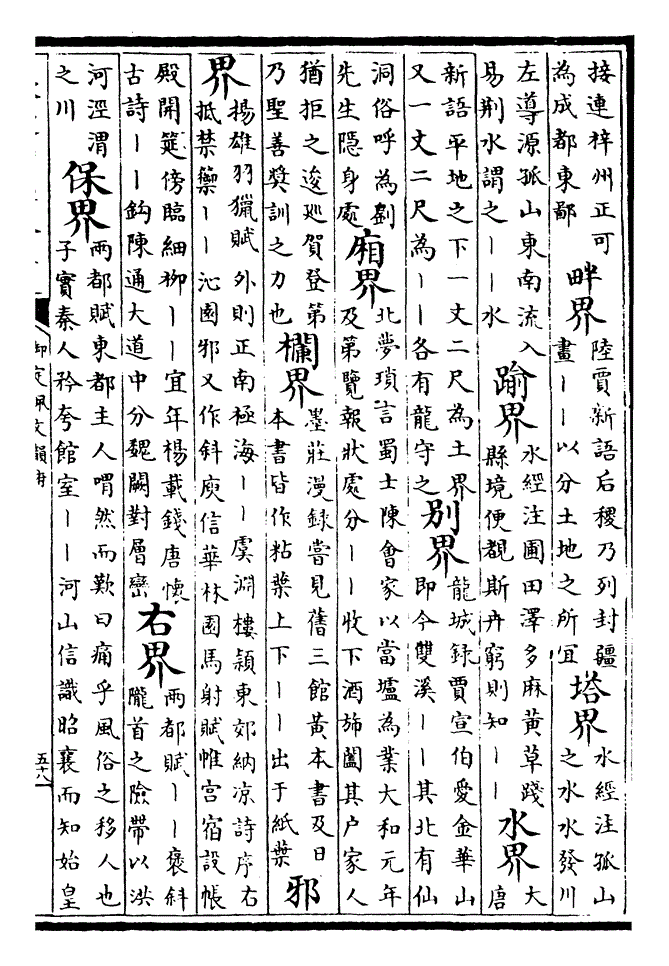 接連梓州正可
為成都東鄙
畔界
陸賈新語后稷乃列封疆
畫丨丨以分土地之所宜
塔界
水經注孤山
之水水發川
左導源孤山東南流入
易荆水謂之丨丨水
踰界
水經注圃田澤多麻黄草踐
縣境便覩斯卉窮則知丨丨
水界
大
唐
新語平地之下一丈二尺為土界
又一丈二尺為丨丨各有龍守之
别界
龍城録賈宣伯愛金華山
即今雙溪丨丨其北有仙
洞俗呼為劉
先生隱身處
廂界
北夢瑣言蜀士陳會家以當壚為業大和元年
及第覽報狀處分丨丨收下酒斾闔其户家人
猶拒之逡廵賀登第
乃聖善奬訓之力也
欄界
墨莊漫録嘗見舊三館黄本書及日
本書皆作粘葉上下丨丨出于紙葉
邪
界
揚雄羽獵賦外則正南極海丨丨虞淵樓頴東郊納凉詩序右
抵禁籞丨丨沁園邪又作斜庾信華林園馬射賦帷宫宿設帳
殿開筵傍臨細栁丨丨宜年楊載錢唐懷
古詩丨丨鈎陳通大道中分魏闕對層巒
右界
兩都賦丨丨褒斜
隴首之險帶以洪
河涇渭
之川
保界
兩都賦東都主人喟然而歎曰痛乎風俗之移人也
子實秦人矜夸館室丨丨河山信識昭襄而知始皇
御定佩文韻府
五十八